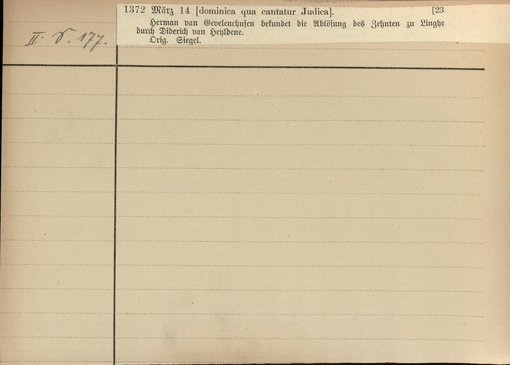 1372 März 14 [dominica qua cantatur Judica]. [23
Herman van Gevelenchusen bekundet die Ablösung des Zehnten zu Linghe
durch Diderich van Heyldene.
Orig. Siegel.
II. V. 177.